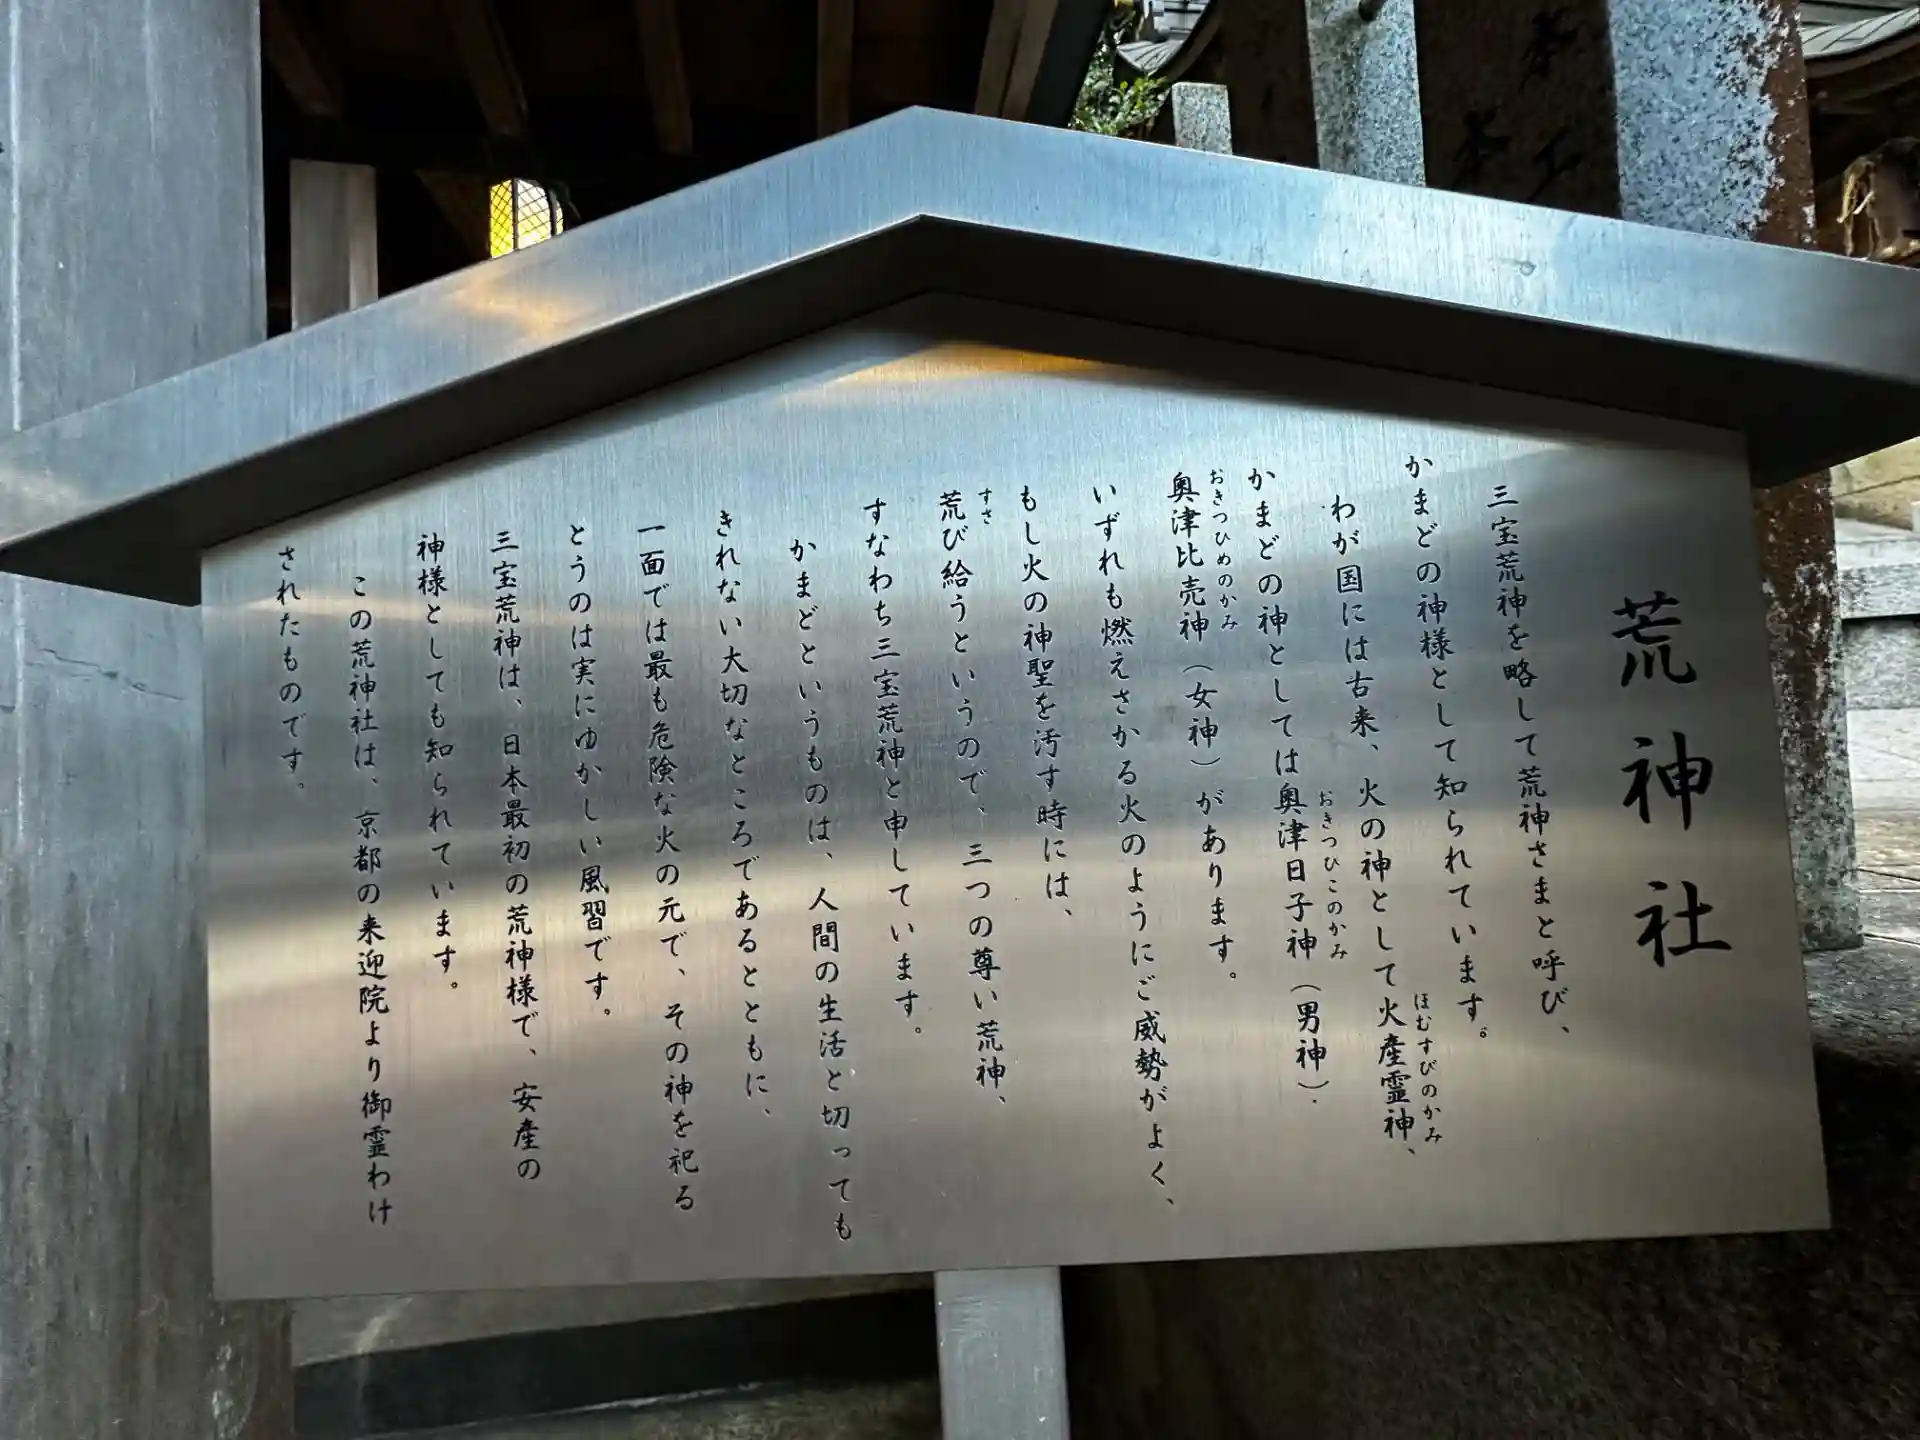 荒神社
三宝荒神を略して荒神さまと呼び、
かまどの神様として知られています。
わが国には古来、火の神として火産霊神、
ほむすびのかみ
かまどの神としては奥津日子神（男神）.
おきつひこのかみ
奥津比売神（女神）があります。
おきつひめのかみ
いずれも燃えさかる火のようにご威勢がよく、
もし火の神聖を汚す時には、
荒び給うというので、三つの尊い荒神、
すさ
すなわち三宝荒神と申しています。
かまどというものは、人間の生活と切っても
きれない大切なところであるとともに、
一面では最も危険な火の元で、その神を祀る
とうのは実にゆかしい風習です。
三宝荒神は、日本最初の荒神様で、安産の
神様としても知られています。
この荒神社は、京都の来迎院より御霊わけ
されたものです。